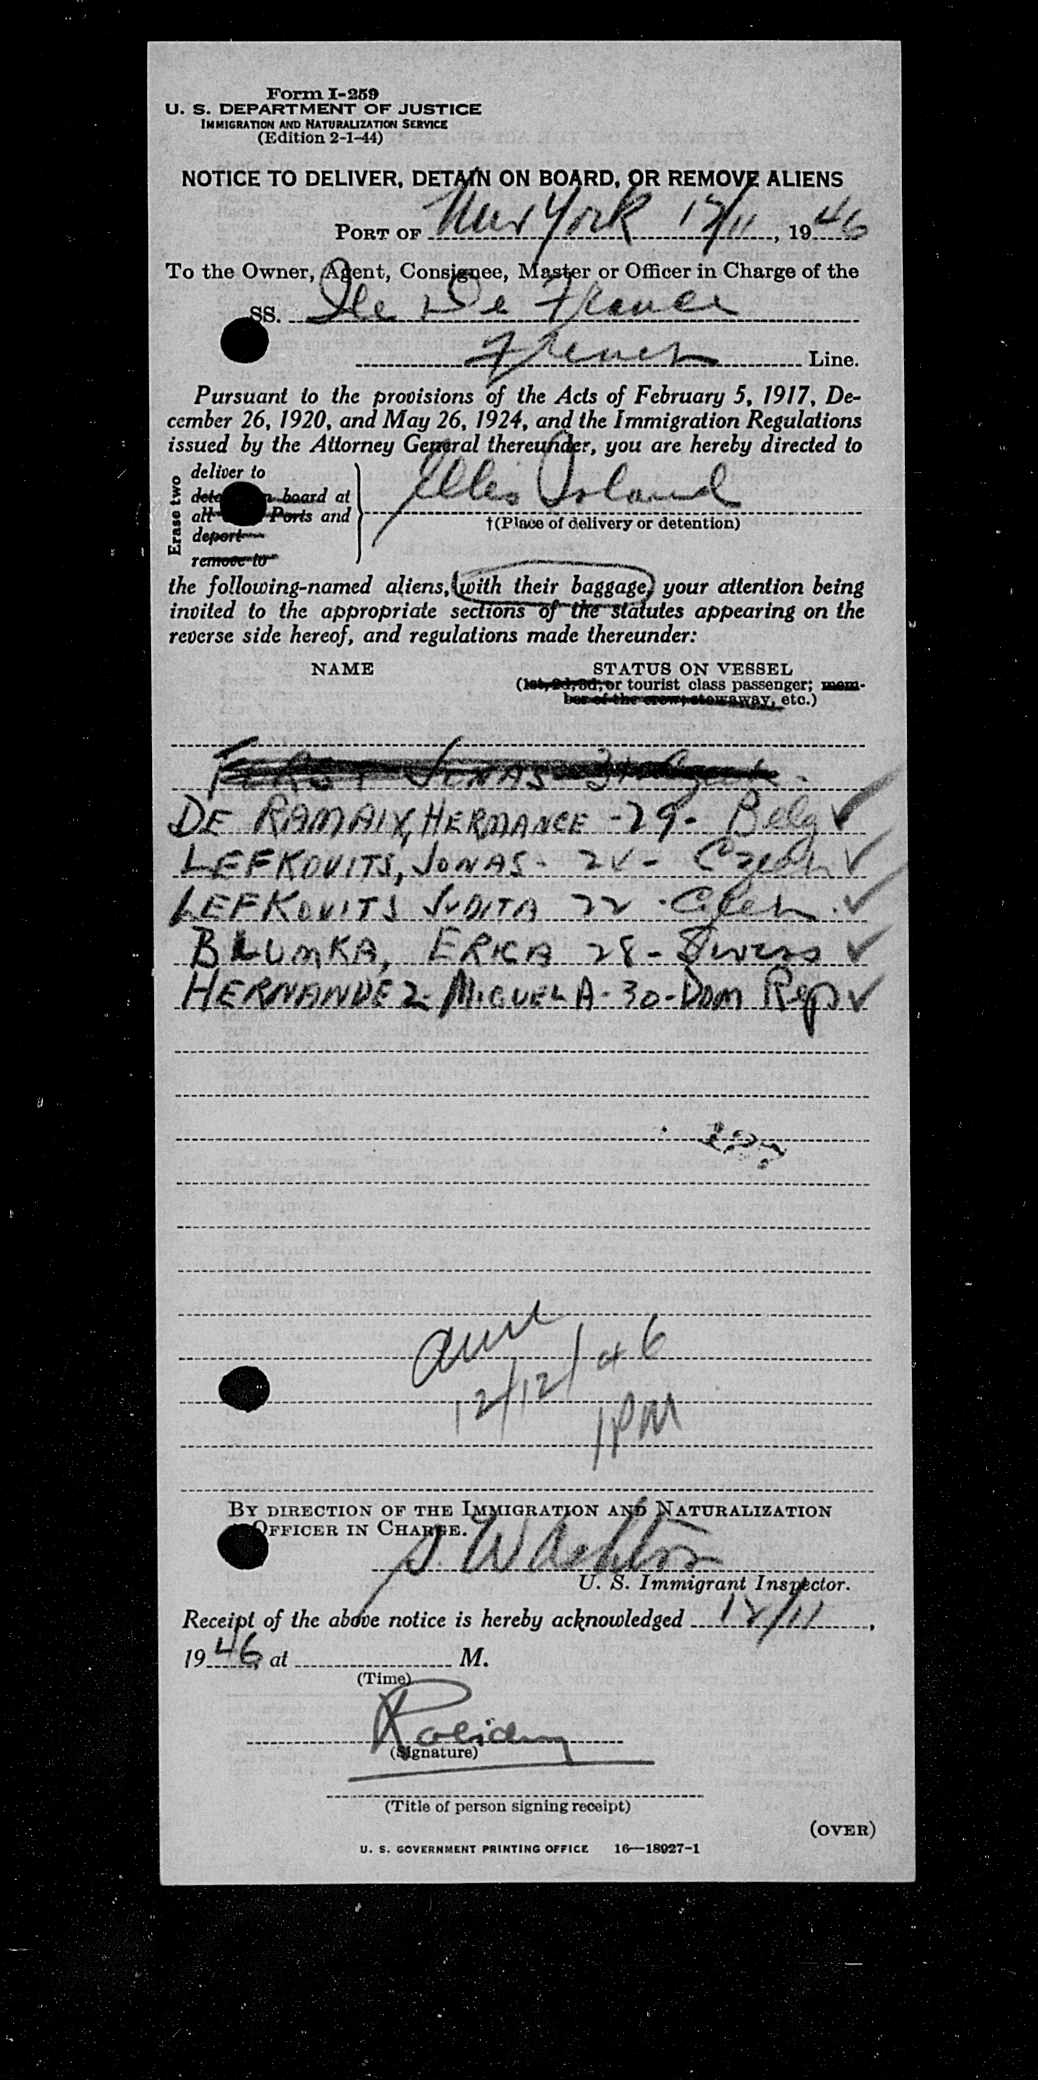 Form I-259
U. S. DEPARTMENT OF JUSTICE
IMMIGRATION AND NATURALIZATION SERVICE
(Edition 2-1-44)
NOTICE TO DELIVER, DETAIN ON BOARD, OR REMOVE ALIENS
PORT OF New York 12/11, 1946
To the Owner, Agent, Consignee, Master or Officer in Charge of the
SS. Ile De France
French Line.
Pursuant to the provisions of the Acts of February 5, 1917, De-
cember 26, 1920, and May 26, 1924, and the Immigration Regulations
issued by the Attorney General thereunder, you are hereby directed to
Erase two
deliver to
board at
all Ports and
deport
remove to
Ellis Island
†(Place of delivery or detention)
the following-named aliens, with their baggage, your attention being
invited to the appropriate sections of the statutes appearing on the
reverse side hereof, and regulations made thereunder:
NAME STATUS ON VESSEL
(1st, 2d, 3d, or tourist class passenger; mem-
ber of the crew, stowaway, etc.)
JONAS
DE RAMAIX, HERMANCE - 29 - Belg ✓
LEFKOVITS, JONAS - 2 - Czech ✓
LEFKOVITS JUDITA 22 - Czech ✓
BLUMKA, ERICA 28 - Swiss ✓
HERNANDEZ MIGUEL A - 30 - Dom Rep ✓
127
12/12/46
1 PM
BY DIRECTION OF THE IMMIGRATION AND NATURALIZATION
OFFICER IN CHARGE.
U. S. Immigrant Inspector.
Receipt of the above notice is hereby acknowledged 12/11,
1946, at M.
(Time)
(Signature)
(Title of person signing receipt)
(OVER)
U. S. GOVERNMENT PRINTING OFFICE 16—18927-1